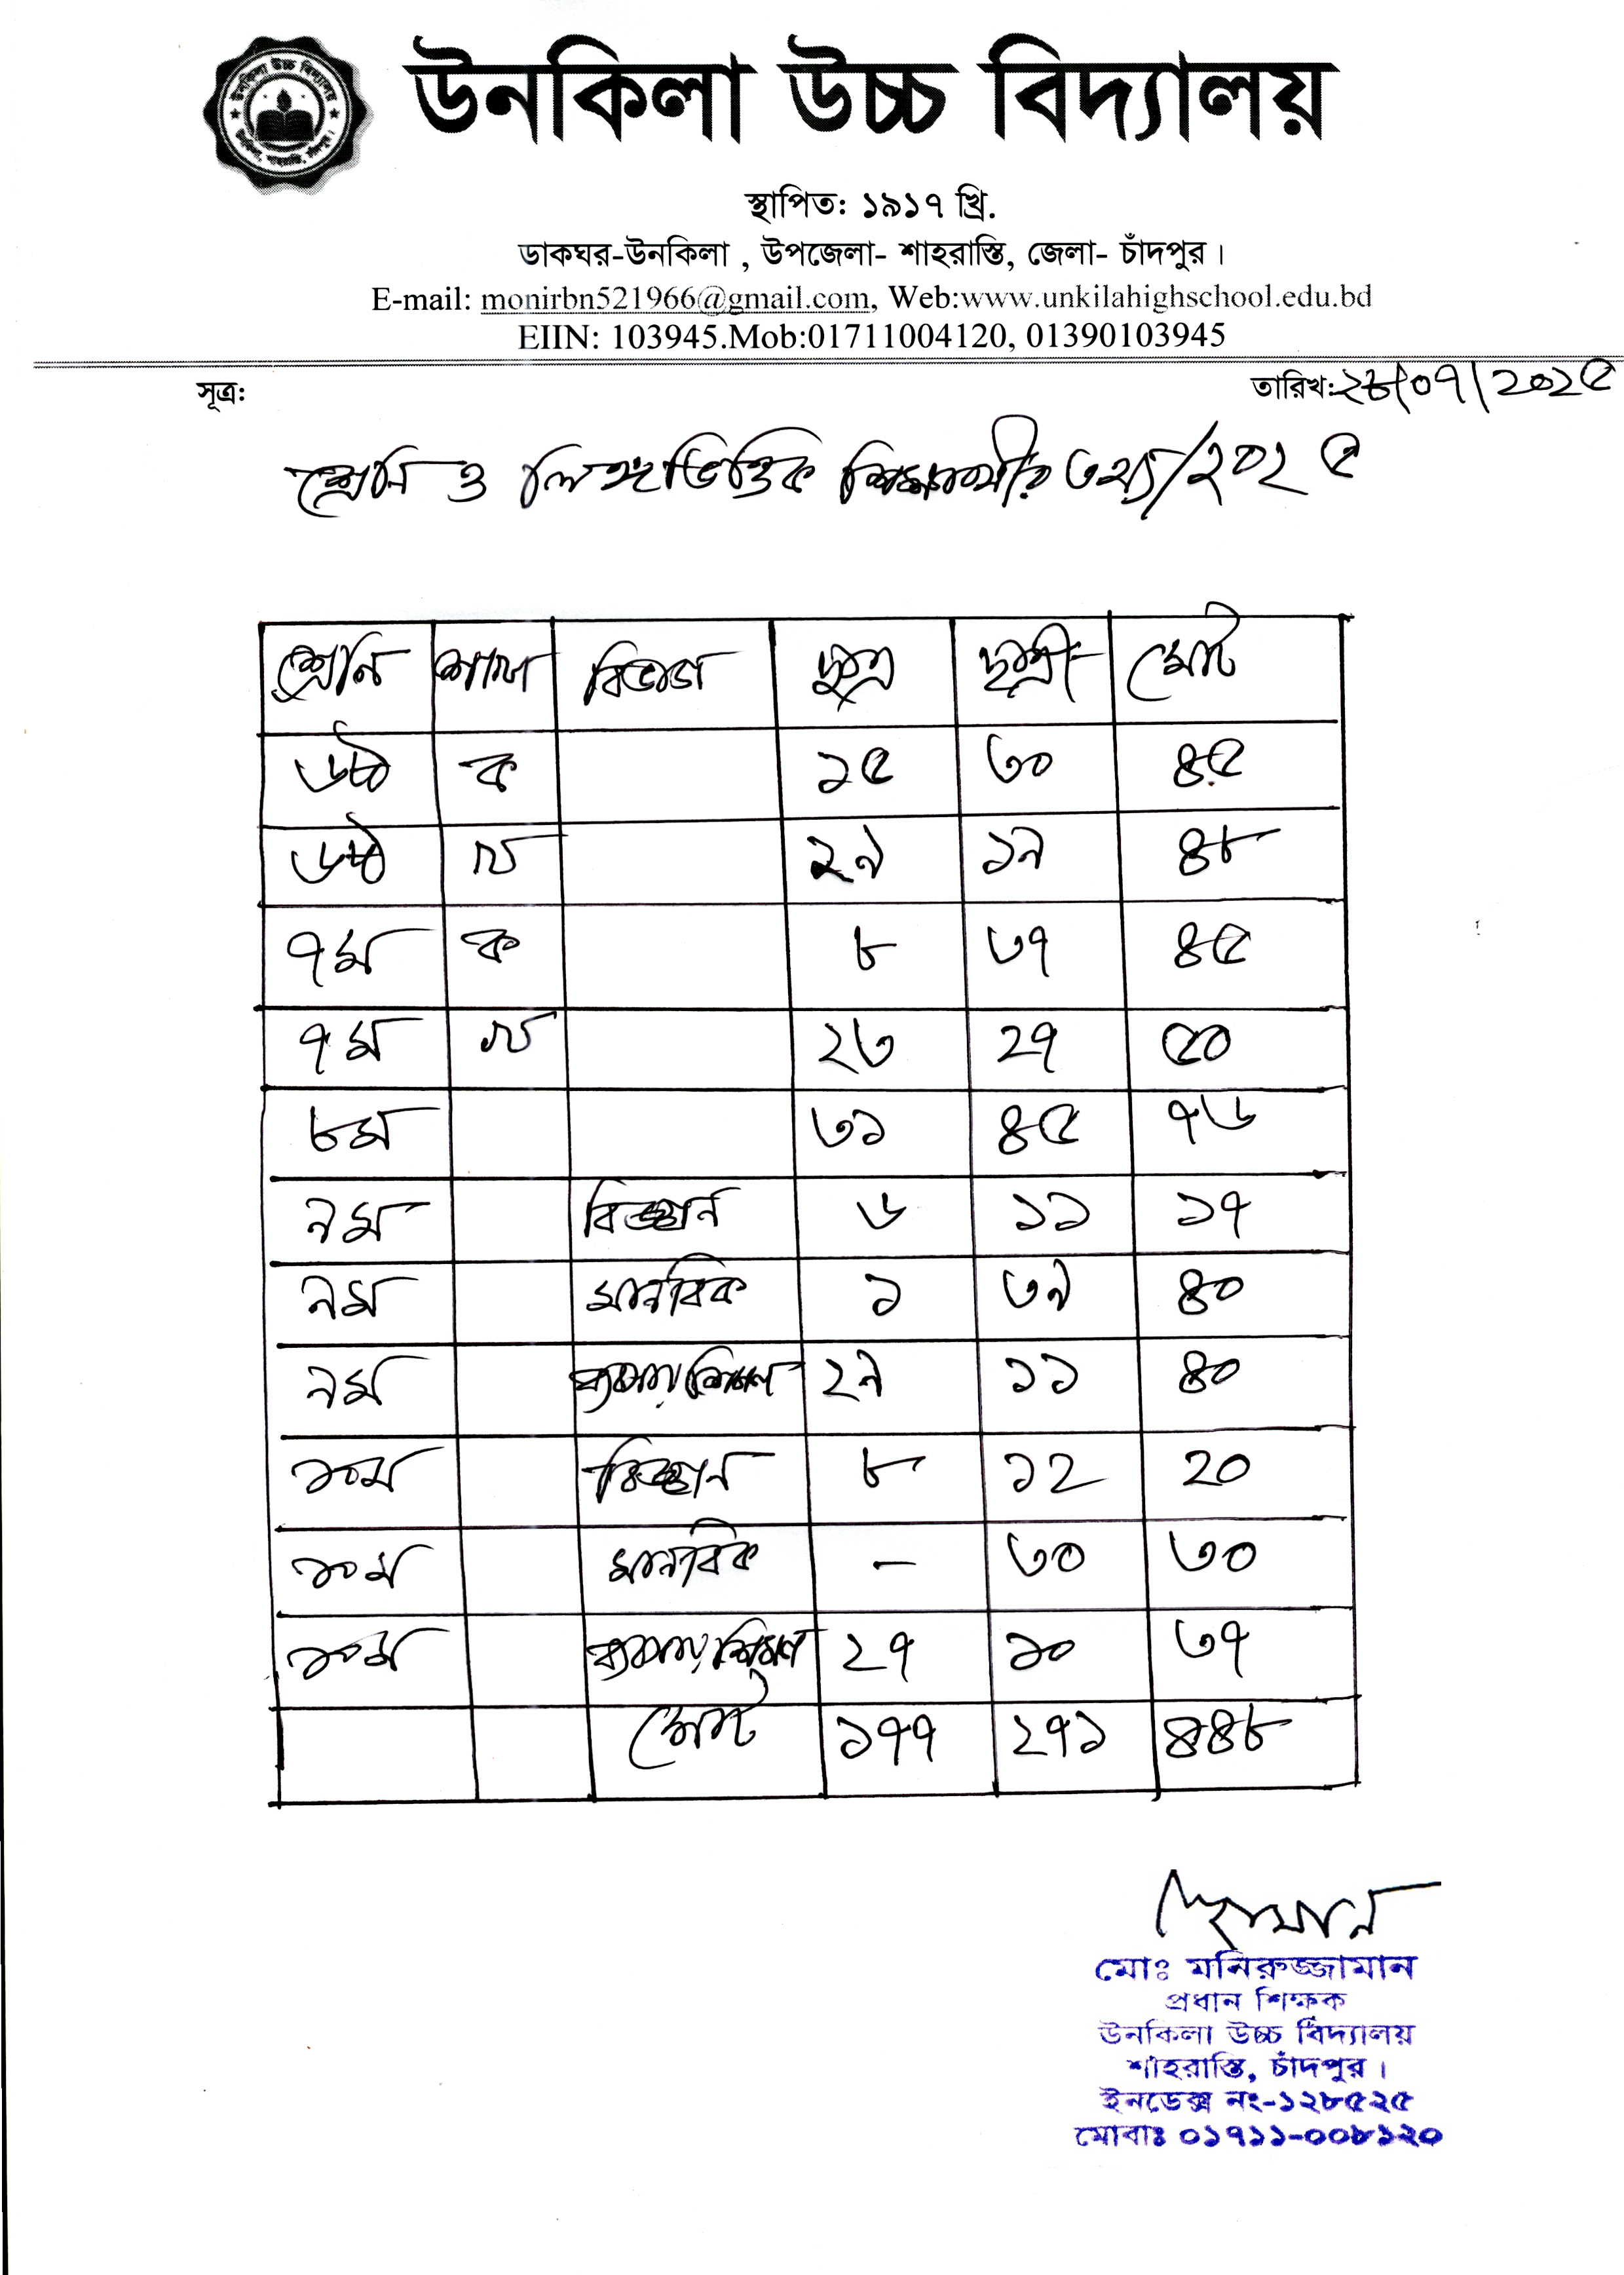 উনকিলা উচ্চ বিদ্যালয়
স্থাপিত: ১৯১৭ খ্রি.
ডাকঘর-উনকিলা , উপজেলা- শাহরাস্তি, জেলা- চাঁদপুর।
E-mail: monirbn521966@gmail.com, Web:www.unkilahighschool.edu.bd
EIIN: 103945.Mob:01711004120, 01390103945
সূত্র: তারিখ: /০৭/২০২৫
শ্রেনি ও লিঙ্গভিত্তিক শিক্ষার্থীর তথ্য/২০২৫
শ্রেনি শাখা বিভাগ ছাত্র ছাত্রী মোট
৬ষ্ঠ ক ১৫ ৩০ ৪৫
৬ষ্ঠ খ ২৯ ১৯ ৪৮
৭ম ক ৮ ৩৭ ৪৫
৭ম খ ২৩ ২৭ ৫০
৮ম ৩১ ৪৫ ৭৬
৯ম বিজ্ঞান ৬ ১১ ১৭
৯ম মানবিক ১ ৩৯ ৪০
৯ম ব্যবসায় শিক্ষা ২৯ ১১ ৪০
১০ম বিজ্ঞান ৮ ১২ ২০
১০ম মানবিক - ৩০ ৩০
১০ম ব্যবসায় শিক্ষা ২৭ ১০ ৩৭
মোট ১৭৭ ২৭১ ৪৪৮
মোঃ মনিরুজ্জামান
প্রধান শিক্ষক
উনকিলা উচ্চ বিদ্যালয়
শাহরাস্তি, চাঁদপুর।
ইনডেক্স নং-১২৮৫২৫
মোবাঃ ০১৭১১-০০৪১২০